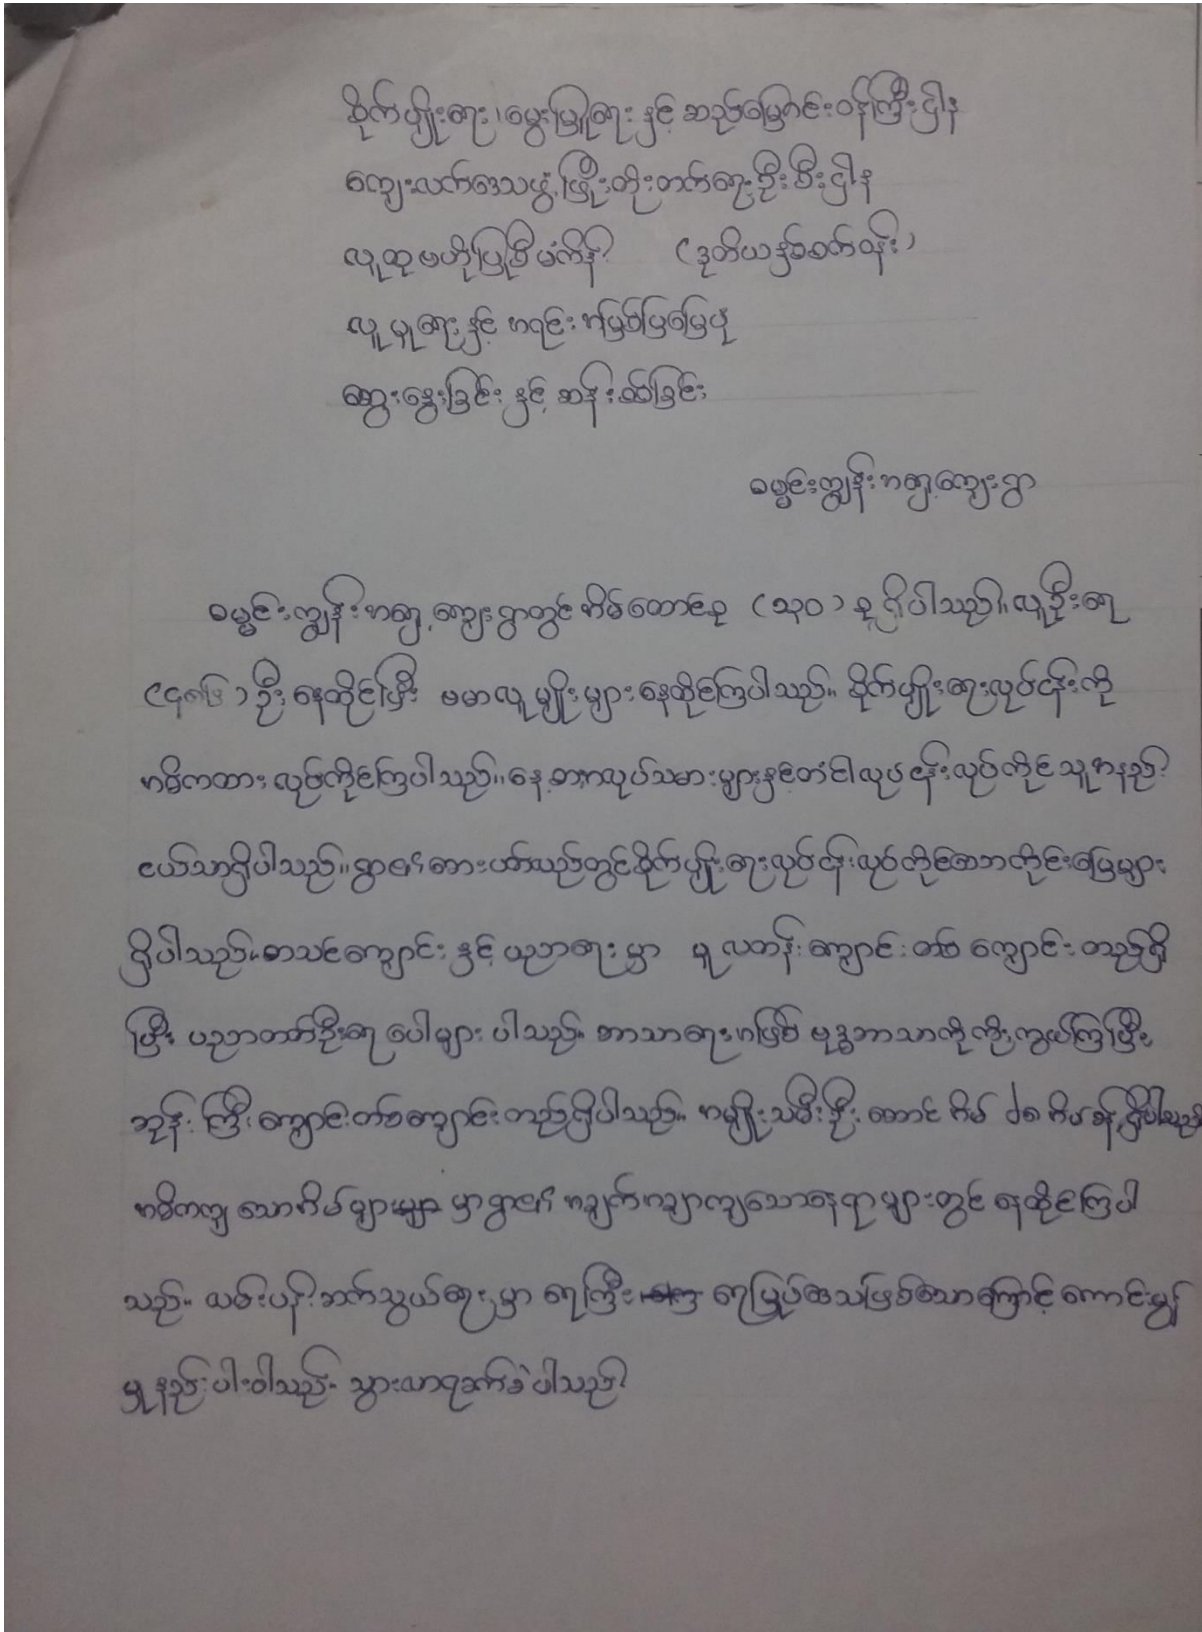 စိုက်ပျိုးရေး၊ မွေးမြူရေး နှင့် ဆည်မြောင်းဝန်ကြီးဌာန
ကျေးလက်ဒေသဖွံ့ဖြိုးတိုးတက်ရေးဦးစီးဌာန
လူထုဗဟိုပြုစီမံကိန်း (ဒုတိယနှစ်စက်ဝန်း)
လူမှုရေးနှင့် အရင်းအမြစ်ပြမြေပုံ
ဆွေးနွေးခြင်း နှင့် ဆန်းစစ်ခြင်း
ဓမ္မင်းကျွန်းအရှေ့ကျေးရွာ
ဓမ္မင်းကျွန်းအရှေ့ကျေးရွာတွင် အိမ်ထောင်စု (၁၃၀) စု ရှိပါသည်။ လူဦးရေ
ဦးနေထိုင်ပြီး ဗမာလူမျိုးများနေထိုင်ကြပါသည်။ စိုက်ပျိုးရေးလုပ်ငန်းကို
အဓိကထားလုပ်ကိုင်ကြပါသည်။ နေ့စားအလုပ်သမားများနှင့်တံငါလုပ်ငန်းလုပ်ကိုင်သူအနည်း
ငယ်သာရှိပါသည်။ ရွာ၏ဘေးပတ်လည်တွင်စိုက်ပျိုးရေးလုပ်ငန်းလုပ်ကိုင်သောကိုင်းမြေများ
ရှိပါသည်။ စာသင်ကျောင်း နှင့် ပညာရေးမှာ မူလတန်းကျောင်း တစ်ကျောင်းတည်ရှိ
ပြီး ပညာတတ်ဦးရေ ပေါများပါသည်။ ဘာသာရေးအဖြစ် ဗုဒ္ဓဘာသာကိုကိုးကွယ်ကြပြီး
ဘုန်းကြီးကျောင်းတစ်ကျောင်းတည်ရှိပါသည်။ အမျိုးသမီးဦးဆောင်အိမ် ၁၈ အိမ်ခန့်ရှိပါသည်
အဓိကကျသောအိမ်များမှာရွာ၏ အချက်အချာကျသောနေရာများတွင် နေထိုင်ကြပါ
သည်။ လမ်းပန်းဆက်သွယ်ရေးမှာ ရေကြီး ရေမြုပ်ဒေသဖြစ်သောကြောင့် ကောင်းမွန်
မှုနည်းပါးပါသည်။ သွားလာရခက်ခဲပါသည်။